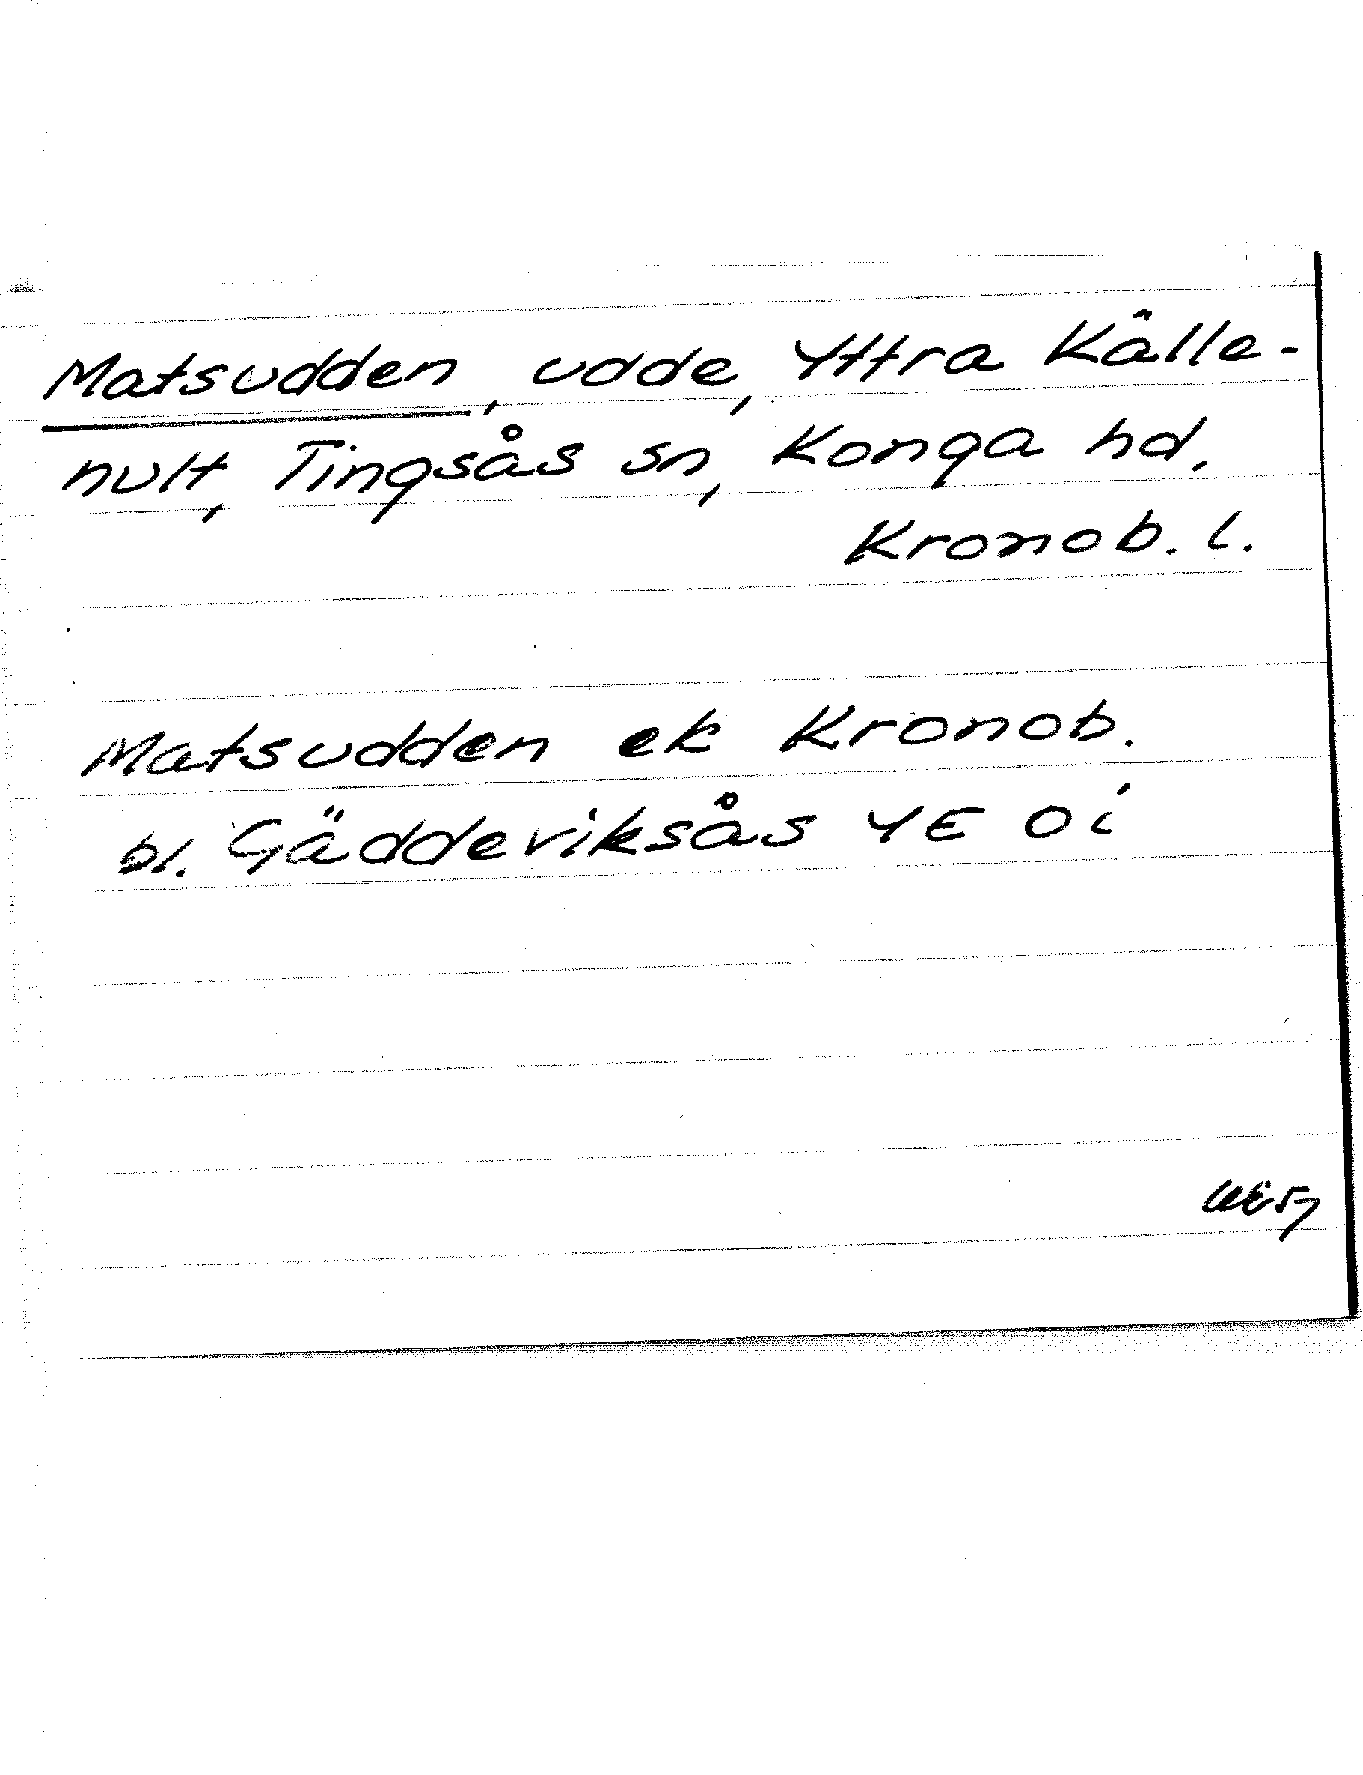 Matsudden, udde, Yttra Källe-
nult, Tingsås sn, Konga hd,
Kronob. l.
Matsudden ek Kronob.
bl. Gädderiksås YE Oi